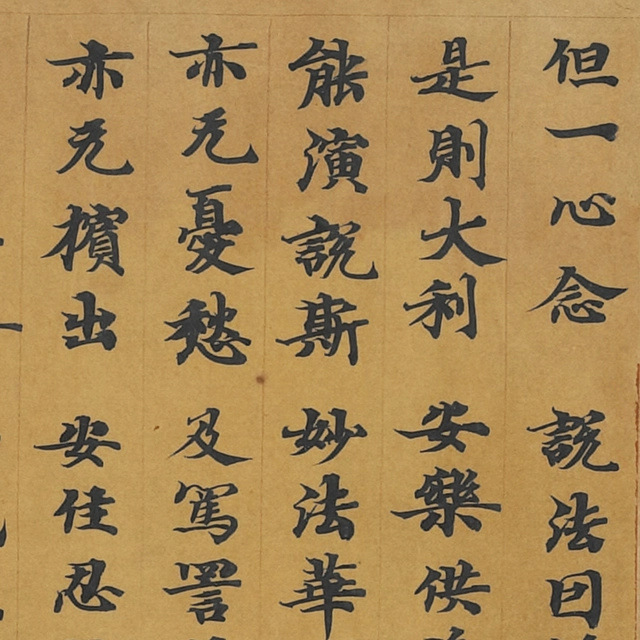 但一心念 說法因
是則大利 安樂供
能演說斯 妙法華
亦无憂愁 及罵詈
亦无擯出 安住忍